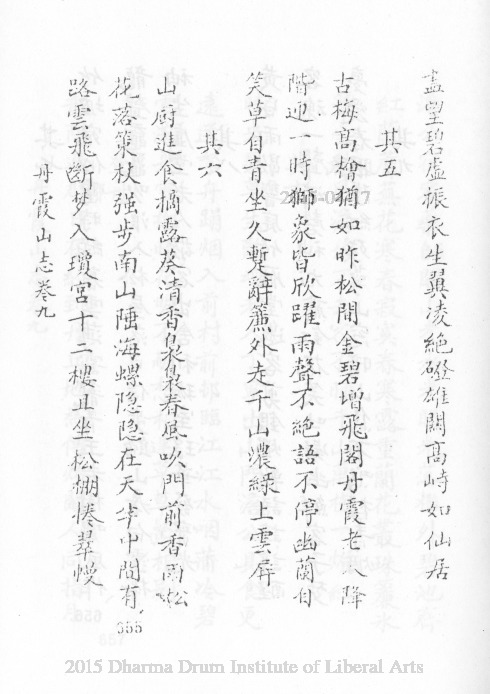 盡望碧虛振衣生翼凌絕磴雄關高峙如仙居
其五
古梅高檜猶如昨松間金碧增飛閣丹霞老人降
階迎一時獅象皆欣躍雨聲不絕語不停幽蘭自
笑草自青坐久蹔辭簷外走千山濃綠上雲屏
其六
山廚進食摘露葵清香裊裊春風吹門前香雨松
花落策杖强步南山陲海螺隐隐在天半中間有
路雲飛斷梦入瓊宮十二樓且坐松棚捲翠幔
丹霞山志卷九
656
2015 Dharma Drum Institute of Liberal Arts